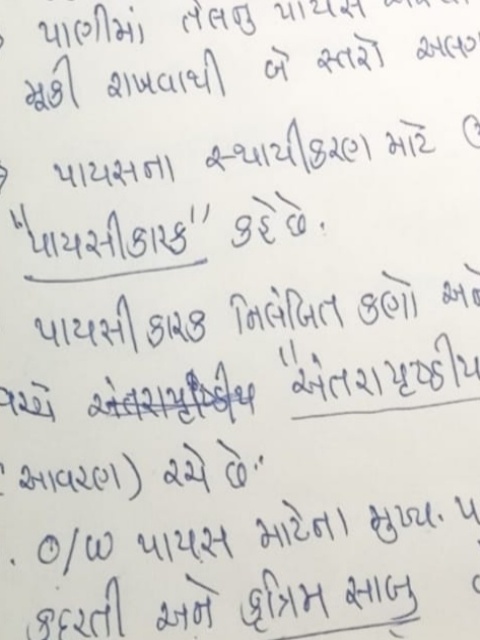 પાણીમાં તેલનુ પાયસ
મૂકી રાખવાથી બે સ્તરો અલગ
પાયસના સ્થાયીકરણ માટે
"પાયસીકારક" કહે છે.
પાયસી કારક નિલંબિત કણો અને
વચ્ચે "અંતરાપૃષ્ઠીય
આવરણ) રચે છે.
O/W પાયસ માટેના મુખ્ય
કુદરતી અને કૃત્રિમ સાબુ